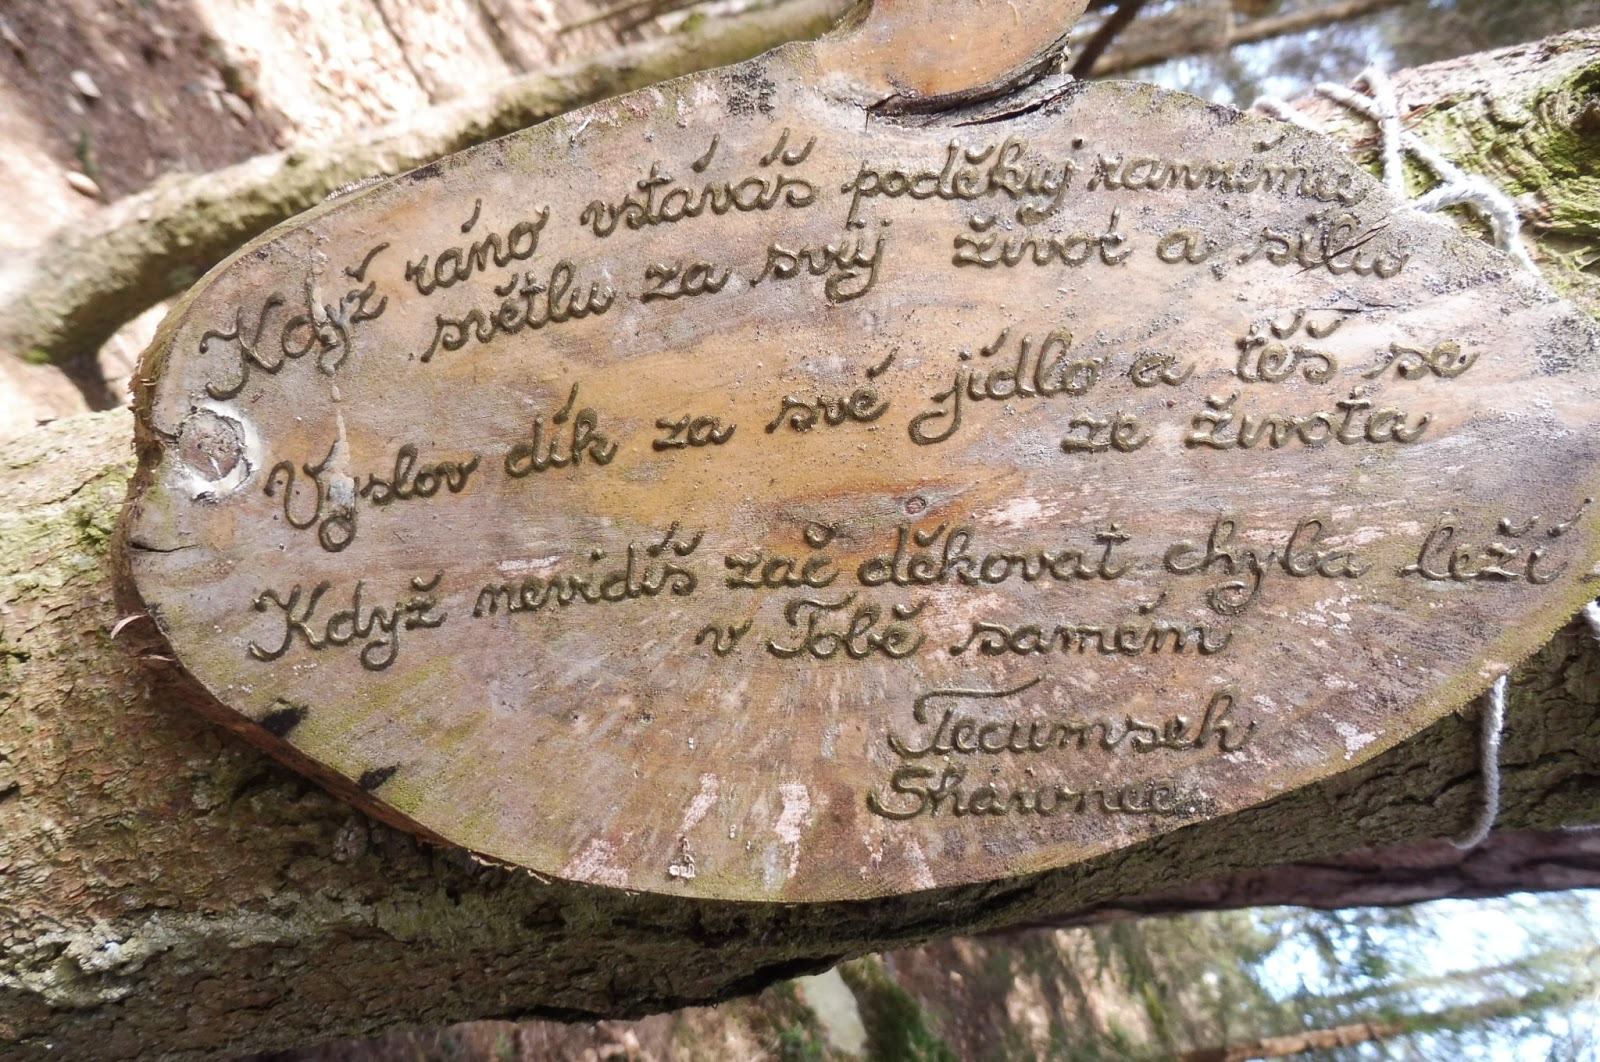 Když ráno vstáváš poděkuj rannímu
světlu za svůj život a sílu
Vyslov dík za své jídlo a těš se
ze života
Když nevidíš zač děkovat chyba leží
v Tobě samém
Tecumseh
Shawnee